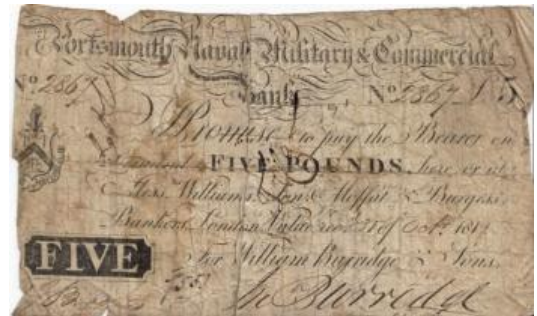 Portsmouth Naval Military & Commercial
Bank
No. 2867 No. 2867 £5
I Promise to pay the Bearer on
Demand FIVE POUNDS, here or at
Messrs. Williams, Son, Moffat & Burgess,
Bankers London Value recd. 31 of Octr. 181
FIVE
For William Burridge & Sons.
Burridge